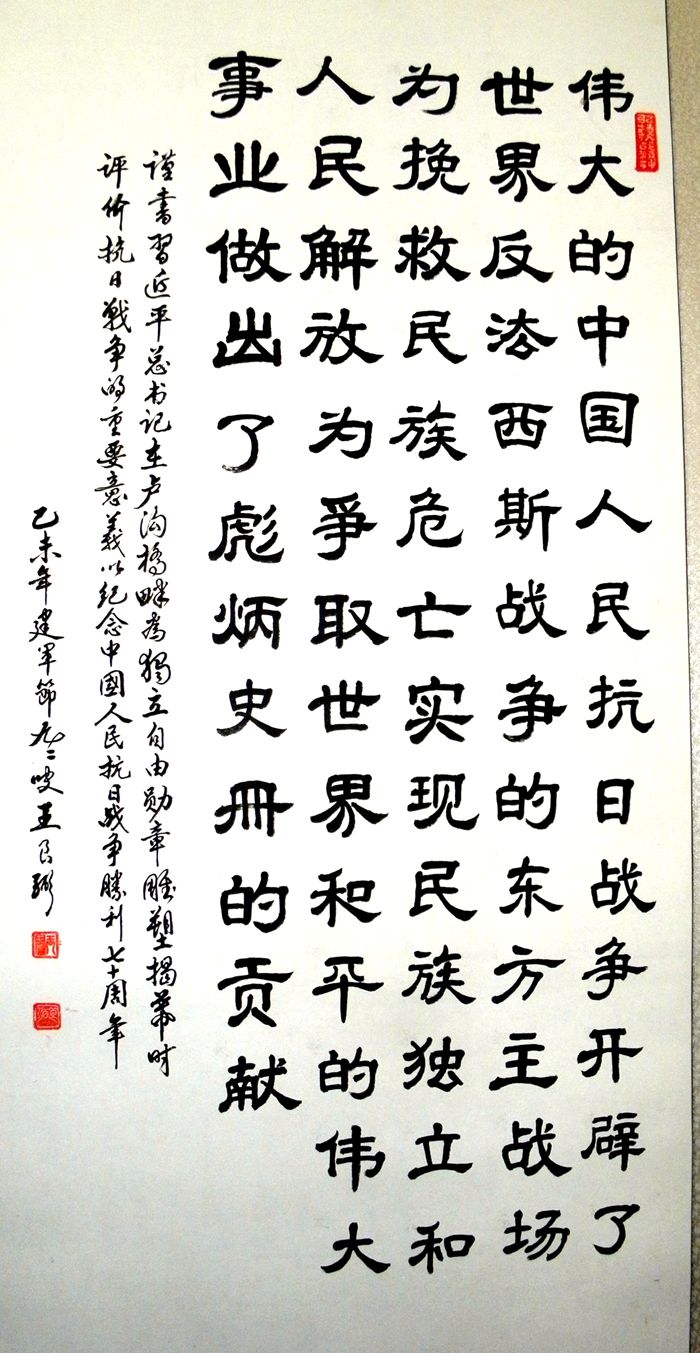 伟大的中国人民抗日战争开辟了
世界反法西斯战争的东方主战场
为挽救民族危亡实现民族独立和
人民解放为争取世界和平的伟大
事业做出了彪炳史冊的贡献
謹書習近平总书记在卢沟橋畔為獨立自由勋章雕塑揭幕时
评价抗日戰争的重要意義以纪念中國人民抗日战争勝利七十周年
乙未年建军節九二叟王良